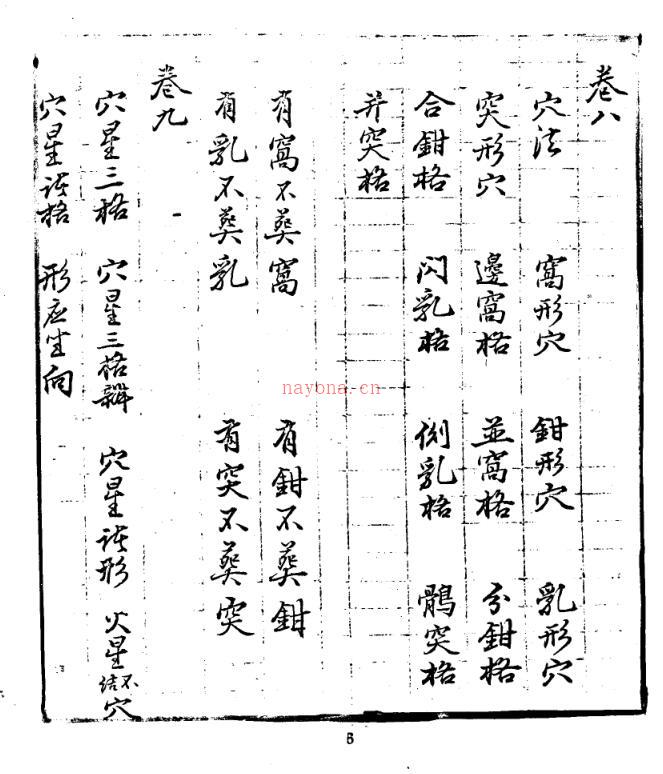 卷八
穴法 窩形穴 鉗形穴 乳形穴
突形穴 邊窩格 並窩格 分鉗格
合鉗格 閃乳格 側乳格 鶻突格
并突格
有窩不葬窩 有鉗不葬鉗
有乳不葬乳 有突不葬突
卷九
穴星三格 穴星三格辯 穴星諸形 火星不結穴
穴星諸格 形应坐向
nayona.cn
6